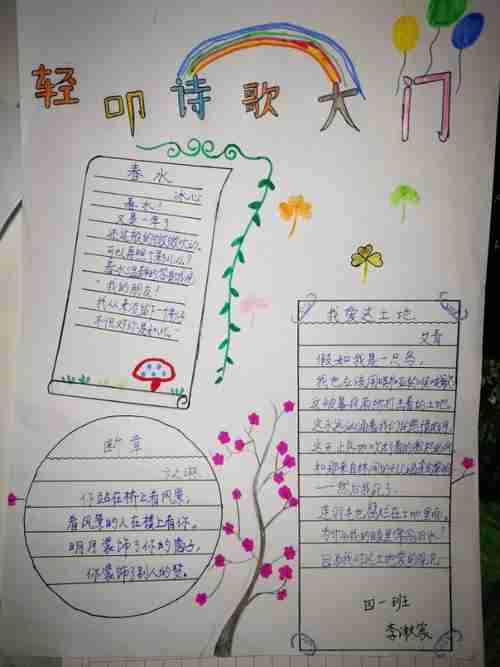 轻叩诗歌大门
春水
冰心
春水！
又是一年了
还这般的微微吹动。
可以再照个影儿么？
春水温静的答谢我说
"我的朋友！
我从来未留下一个影子
不但对你是如此。"
断章
卞之琳
你站在桥上看风景，
看风景的人在楼上看你。
明月装饰了你的窗子，
你装饰了别人的梦。
我爱这土地
艾青
假如我是一只鸟，
我也应该用嘶哑的喉咙歌
这被暴风雨所打击着的土地，
这永远汹涌着我们的悲愤的河
这无止息地吹刮着的激怒的风
和那来自林间的无比温柔的
——然后我死了
连羽毛也腐烂在土地里面。
为什么我的眼里常含泪水？
因为我对这土地爱的深沉
四一班